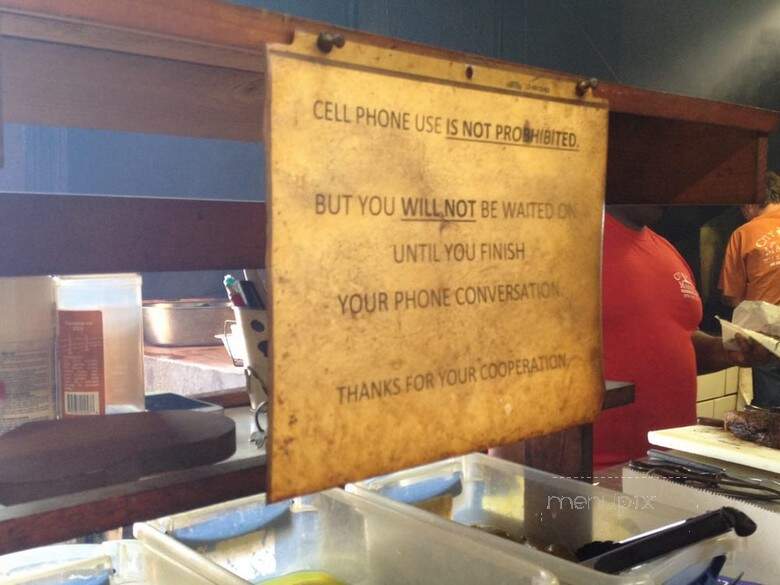 CELL PHONE USE IS NOT PROBHIBITED.
BUT YOU WILL NOT BE WAITED ON
UNTIL YOU FINISH
YOUR PHONE CONVERSATION.
THANKS FOR YOUR COOPERATION.
menupix